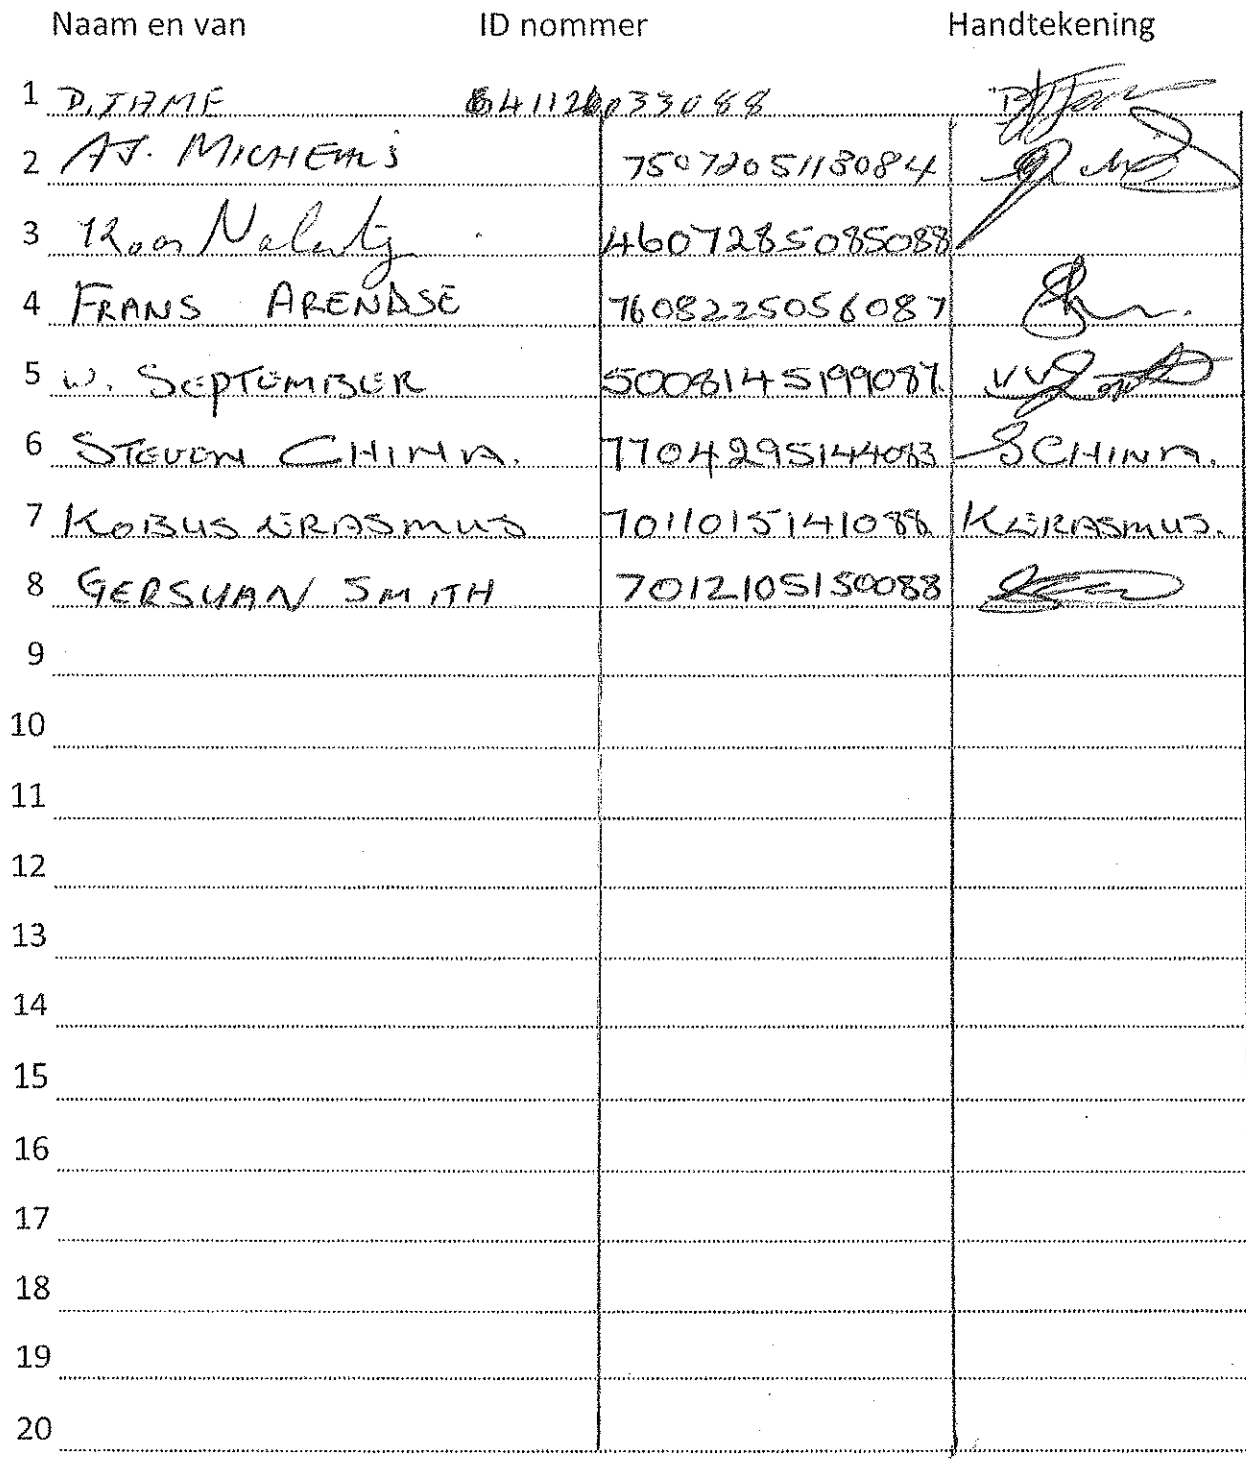 Naam en van ID nommer Handtekening
1 D. TAME 641126033088
2 AJ. MICHEALS 7507205118084
3 Koos 4607285085088
4 FRANS ARENDSE 7608225056087
5 W. SEPTEMBER 5008145199087
6 STEVEN CHINA. 7704295144083 SCHINA.
7 KOBUS ERASMUS 7011015141088 KERASMUS.
8 GERSUAN SMITH 7012105150088
9
10
11
12
13
14
15
16
17
18
19
20